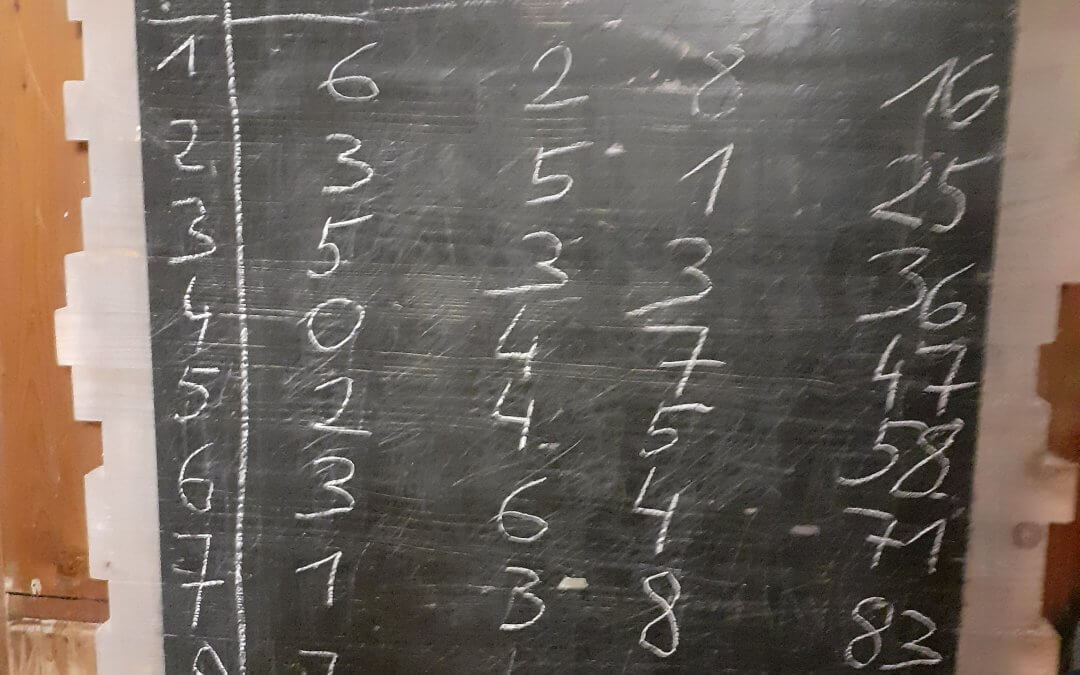 1 6 2 8 16
2 3 5 1 25
3 5 3 3 36
4 0 4 7 47
5 2 4 5 58
6 3 6 4 71
7 1 3 8 83
8 7